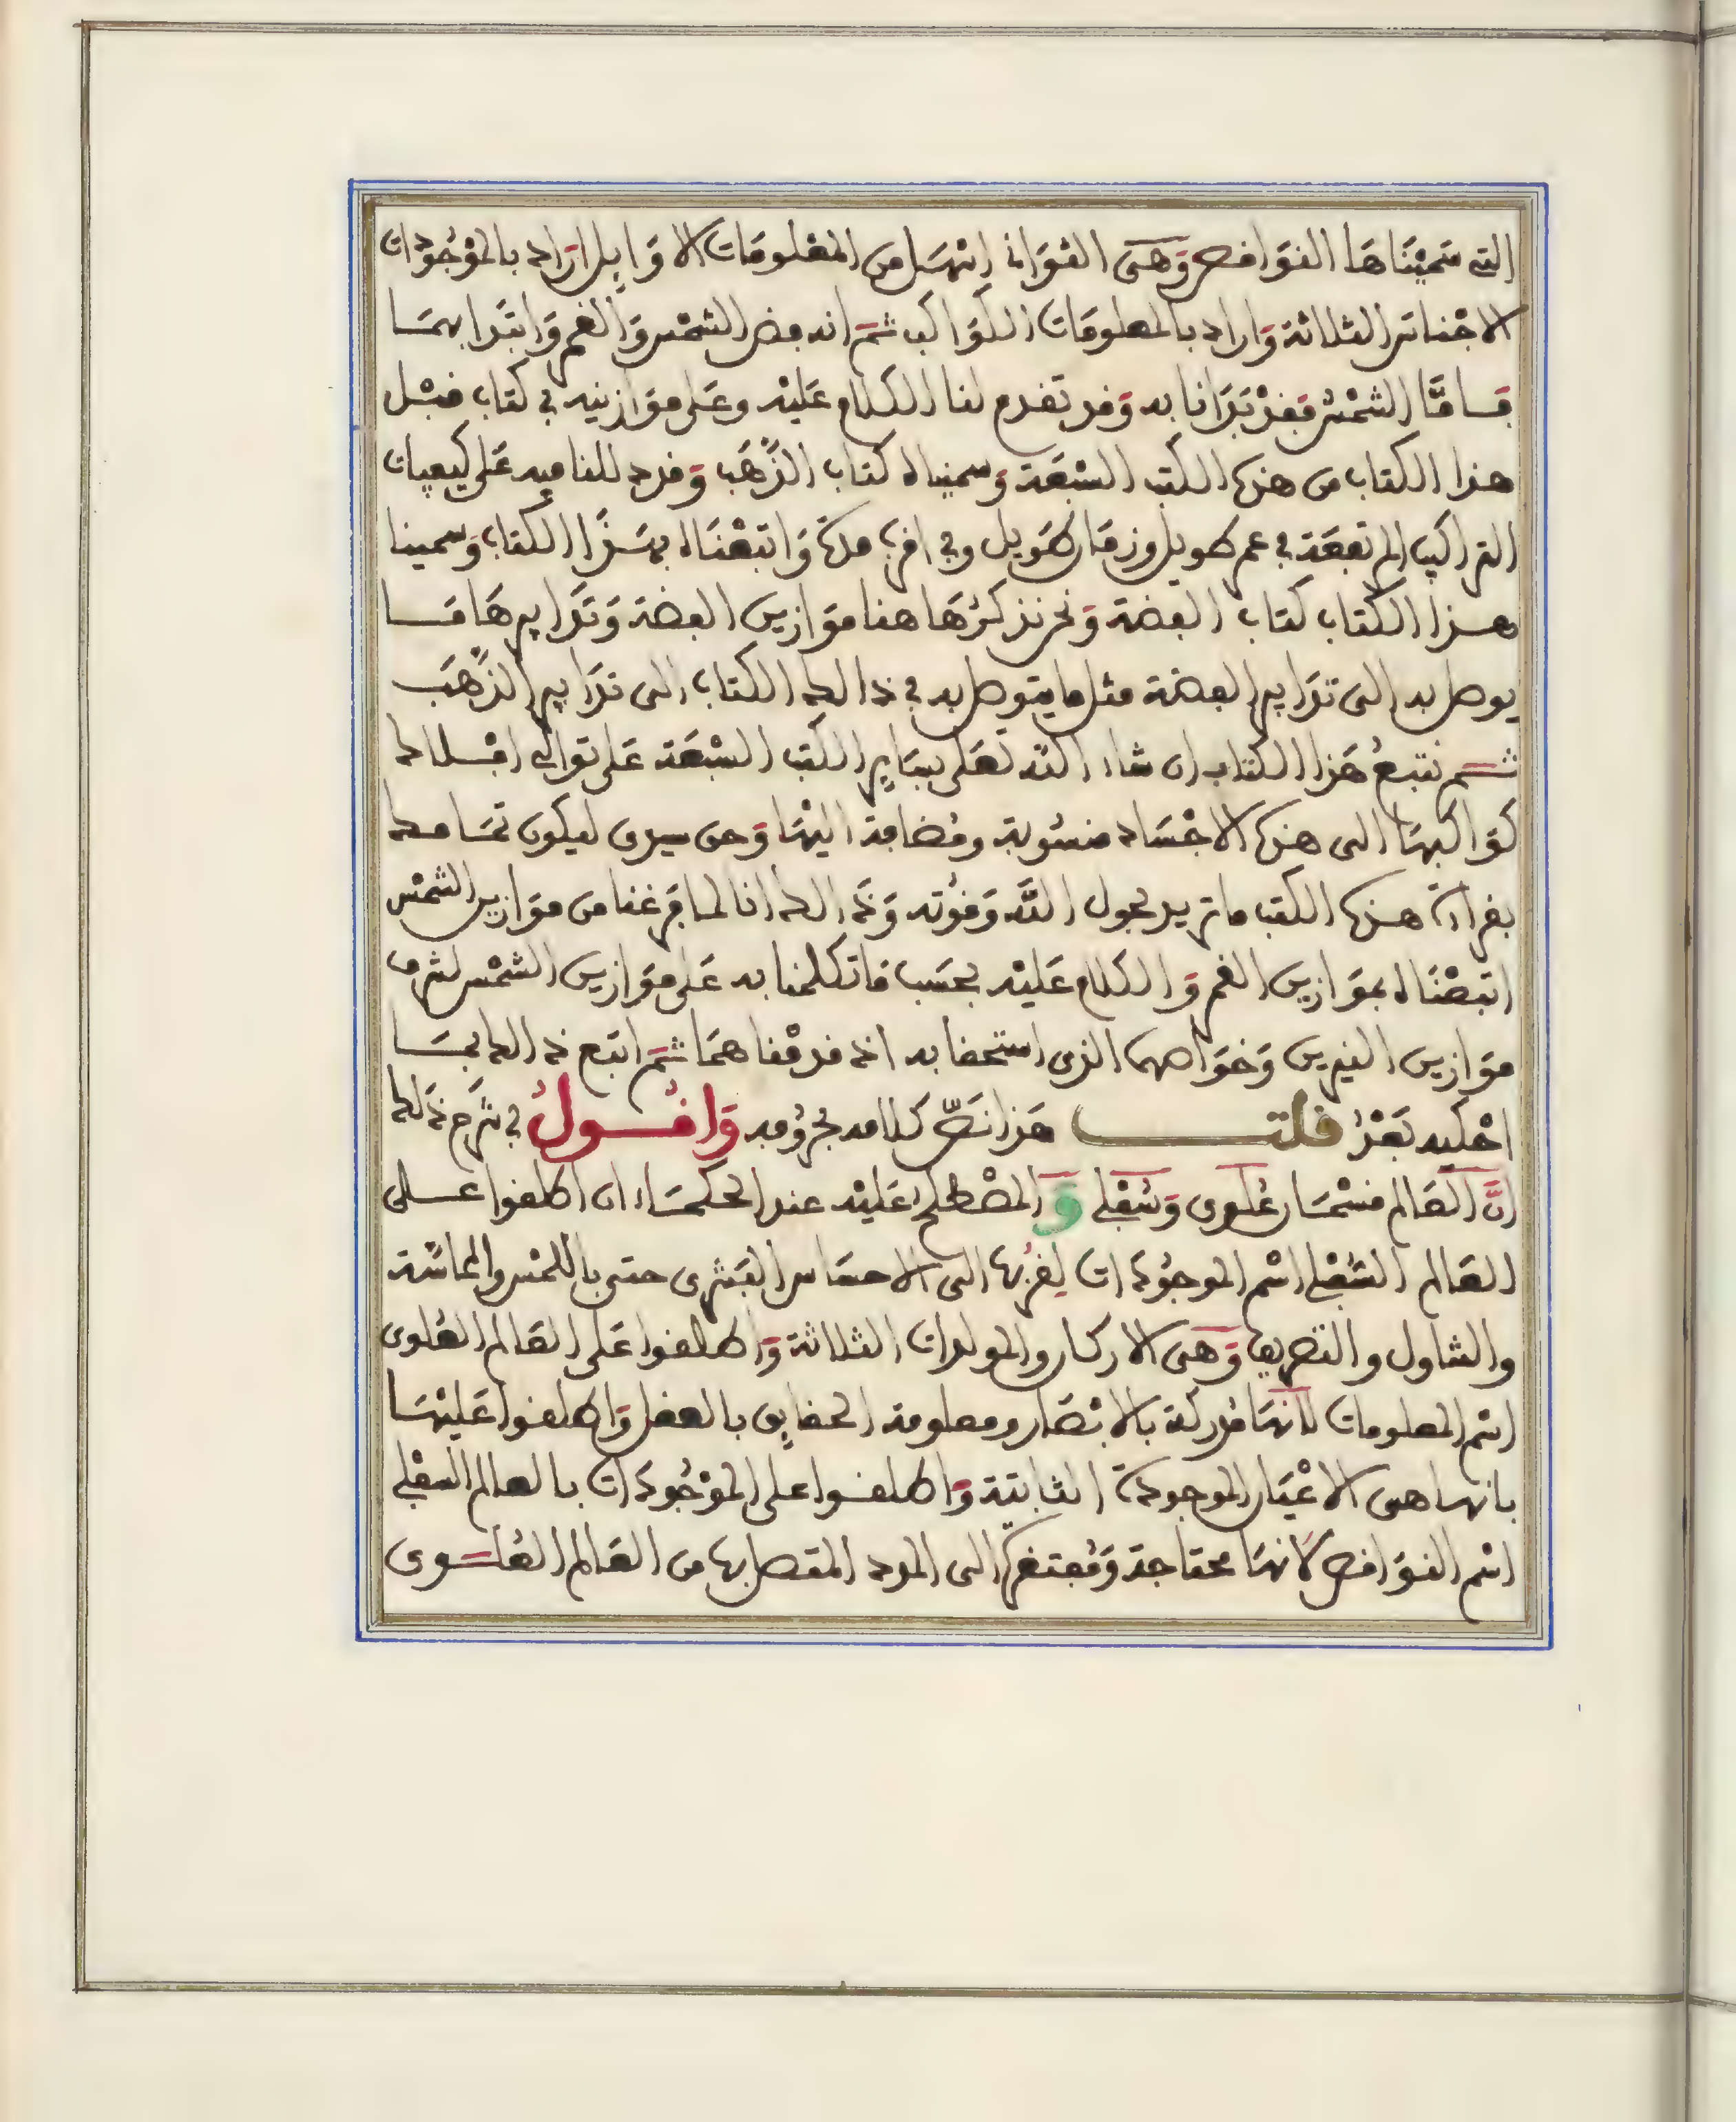 التى سَمَيْنَاهَا النوَاقص وَهىَ الثوَانى انهَسَل من المعْلومَات الاوَايِل ارَاد بالموْجُودَات
الاجْنَاس الثلاثة وَاراد بالمعلومَات الكوَاكب ثمَّ انه بعض الشمْس وَالقمر وَابتدَا بهمَا
فَامَّا الشمْسُ فقدْ بَدَانا به وَقد تقدم لنا الكلام عَليْه وعَلى موَازينه فى كتاب قبْل
هذا الكتاب من هذه الكتب السبْعَة وَسميناه كتاب الذَّهَب وَقد دللنا فيه عَلى كيفيات
التراكيب المرتفعَة فى عمر طويل وزمَان طَويل وفى اقرب مدة وَاتبعْنَاه بهَذَا الكتاب وَسمينا
هذا الكتاب كتاب الفضة وَنحن نذكرُهَا هنا موَازين الفضة وَتدَابيرهَا مَا
يوصل به الى تدَابير الفضة مثل ما يتوصل به فى ذالك الكتاب الى تدَابير الذَّهَب
ثم نتبعُ هَذا الكتاب ان شاء اللَّه تعَلى بسَايِر الكتب السبْعَة عَلى توَالى افْلاك
كوَاكبهَا الى هذه الاجْسَاد منسُوبة ومُضافة اليْهَا وَحق سيدى ليكون تمَامك
بقراءة هذه الكتب ما تريد بحول اللَّه وَقوُته وَذَالك انا لما فَرغنا من موَازين الشمْس
اتبعْنَاه بموَازين القمر وَالكلام عَليْه بحسَب مَا تكلمنا به عَلى موَازين الشمْس لشرف
موَازين النيرين وَخوَاصهما الذى استحقا به اذ قدمْناهمَا ثمَّ اتبع ذالك بمَا
احْكيه بَعْدُ قلت هَذا نصّ كلامه بحرُوفه وَاقُولُ فى شَرح ذَلك
انَّ العَالم قسْمَان عُلوى وَسُفلى وَالمصْطلح عَليْه عند الحكمَاء ان اطلقوا على
العَالم السُفلى اسْم الموجُودَات لِقُربها الى الاحسَاس البَشرى حتى باللمْس والمماسَّة
والتناول والتصريف وَهىَ الاركان والمولدات الثلاثة وَاطلقوا عَلى العَالم العُلوى
اسْم المعلومات لانهَا مُدركة بالابْصَار ومعلومة الحقايِق بالعقل وَاطلقوا عَليْهَا
بانها هى الاعْيَان الموجودَة الثابتة وَاطلقوا على الموْجُودَات بالعالم السفْلى
اسْم النوَاقص لانهَا محتاجة وَمُفتقرة الى المدد المتصل بها من العَالم العُلوى